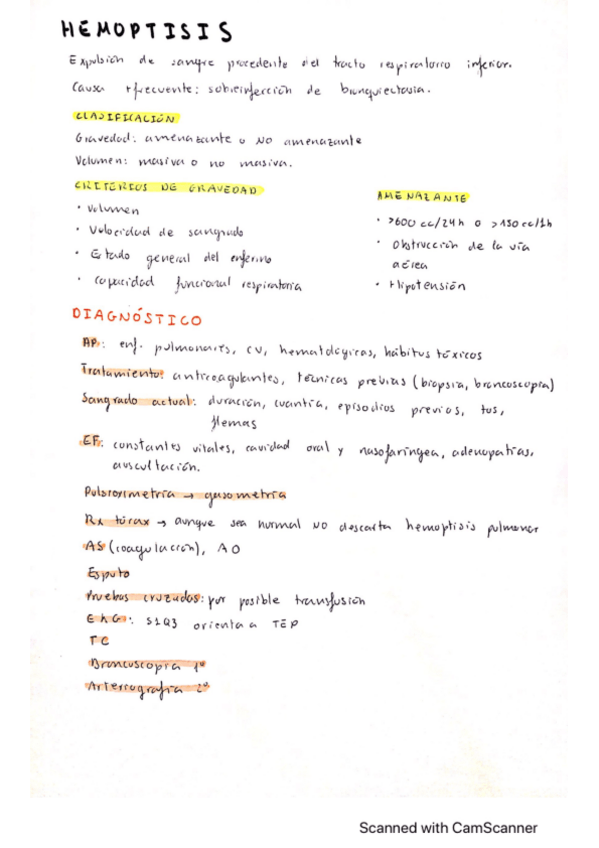 HEMOPTISIS
Expulsión de sangre procedente del tracto respiratorio inferior.
Causa +frecuente: sobreinfección de bronquiectasia.
CLASIFICACIÓN
Gravedad: amenazante o NO amenazante
Volumen: masiva o no masiva.
CRITERIOS DE GRAVEDAD
· Volumen
· Velocidad de sangrado
· Estado general del enfermo
· Capacidad funcional respiratoria
AMENAZANTE
· >600 cc/24h o >150 cc/1h
· Obstrucción de la vía
aérea
· Hipotensión
DIAGNÓSTICO
AP: enf. pulmonares, CV, hematológicas, hábitos tóxicos
Tratamiento: anticoagulantes, técnicas previas (biopsia, broncoscopia)
Sangrado actual: duración, cuantía, episodios previos, tos,
flemas
EF: constantes vitales, cavidad oral y nasofaríngea, adenopatías,
auscultación.
Pulsioximetría → gasometría
Rx tórax → aunque sea normal NO descarta hemoptisis pulmonar
AS (coagulación), AO
Esputo
Pruebas cruzadas: por posible transfusión
EKG: S1Q3 orienta a TEP
TC
Broncoscopia 1º
Arteriografía 2º
Scanned with CamScanner